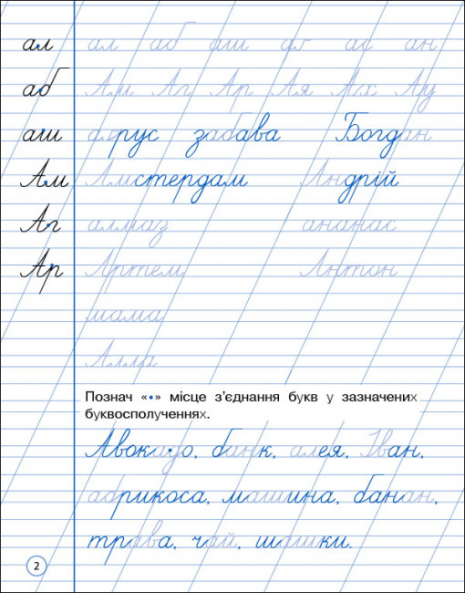 ал ал аб аш аг ас ан
аб Ам Аг Ар Ая Ах Ау
аш аярус забава Богдан
Ам Амстердам Андрій
Аг алмаз ананас
Ар Артем Антон
мама
Алла
Познач «•» місце з’єднання букв у зазначених
буквосполученнях.
Авокадо, банк, алея, Іван,
абрикоса, машина, банан,
трава, чай, шашки.
2